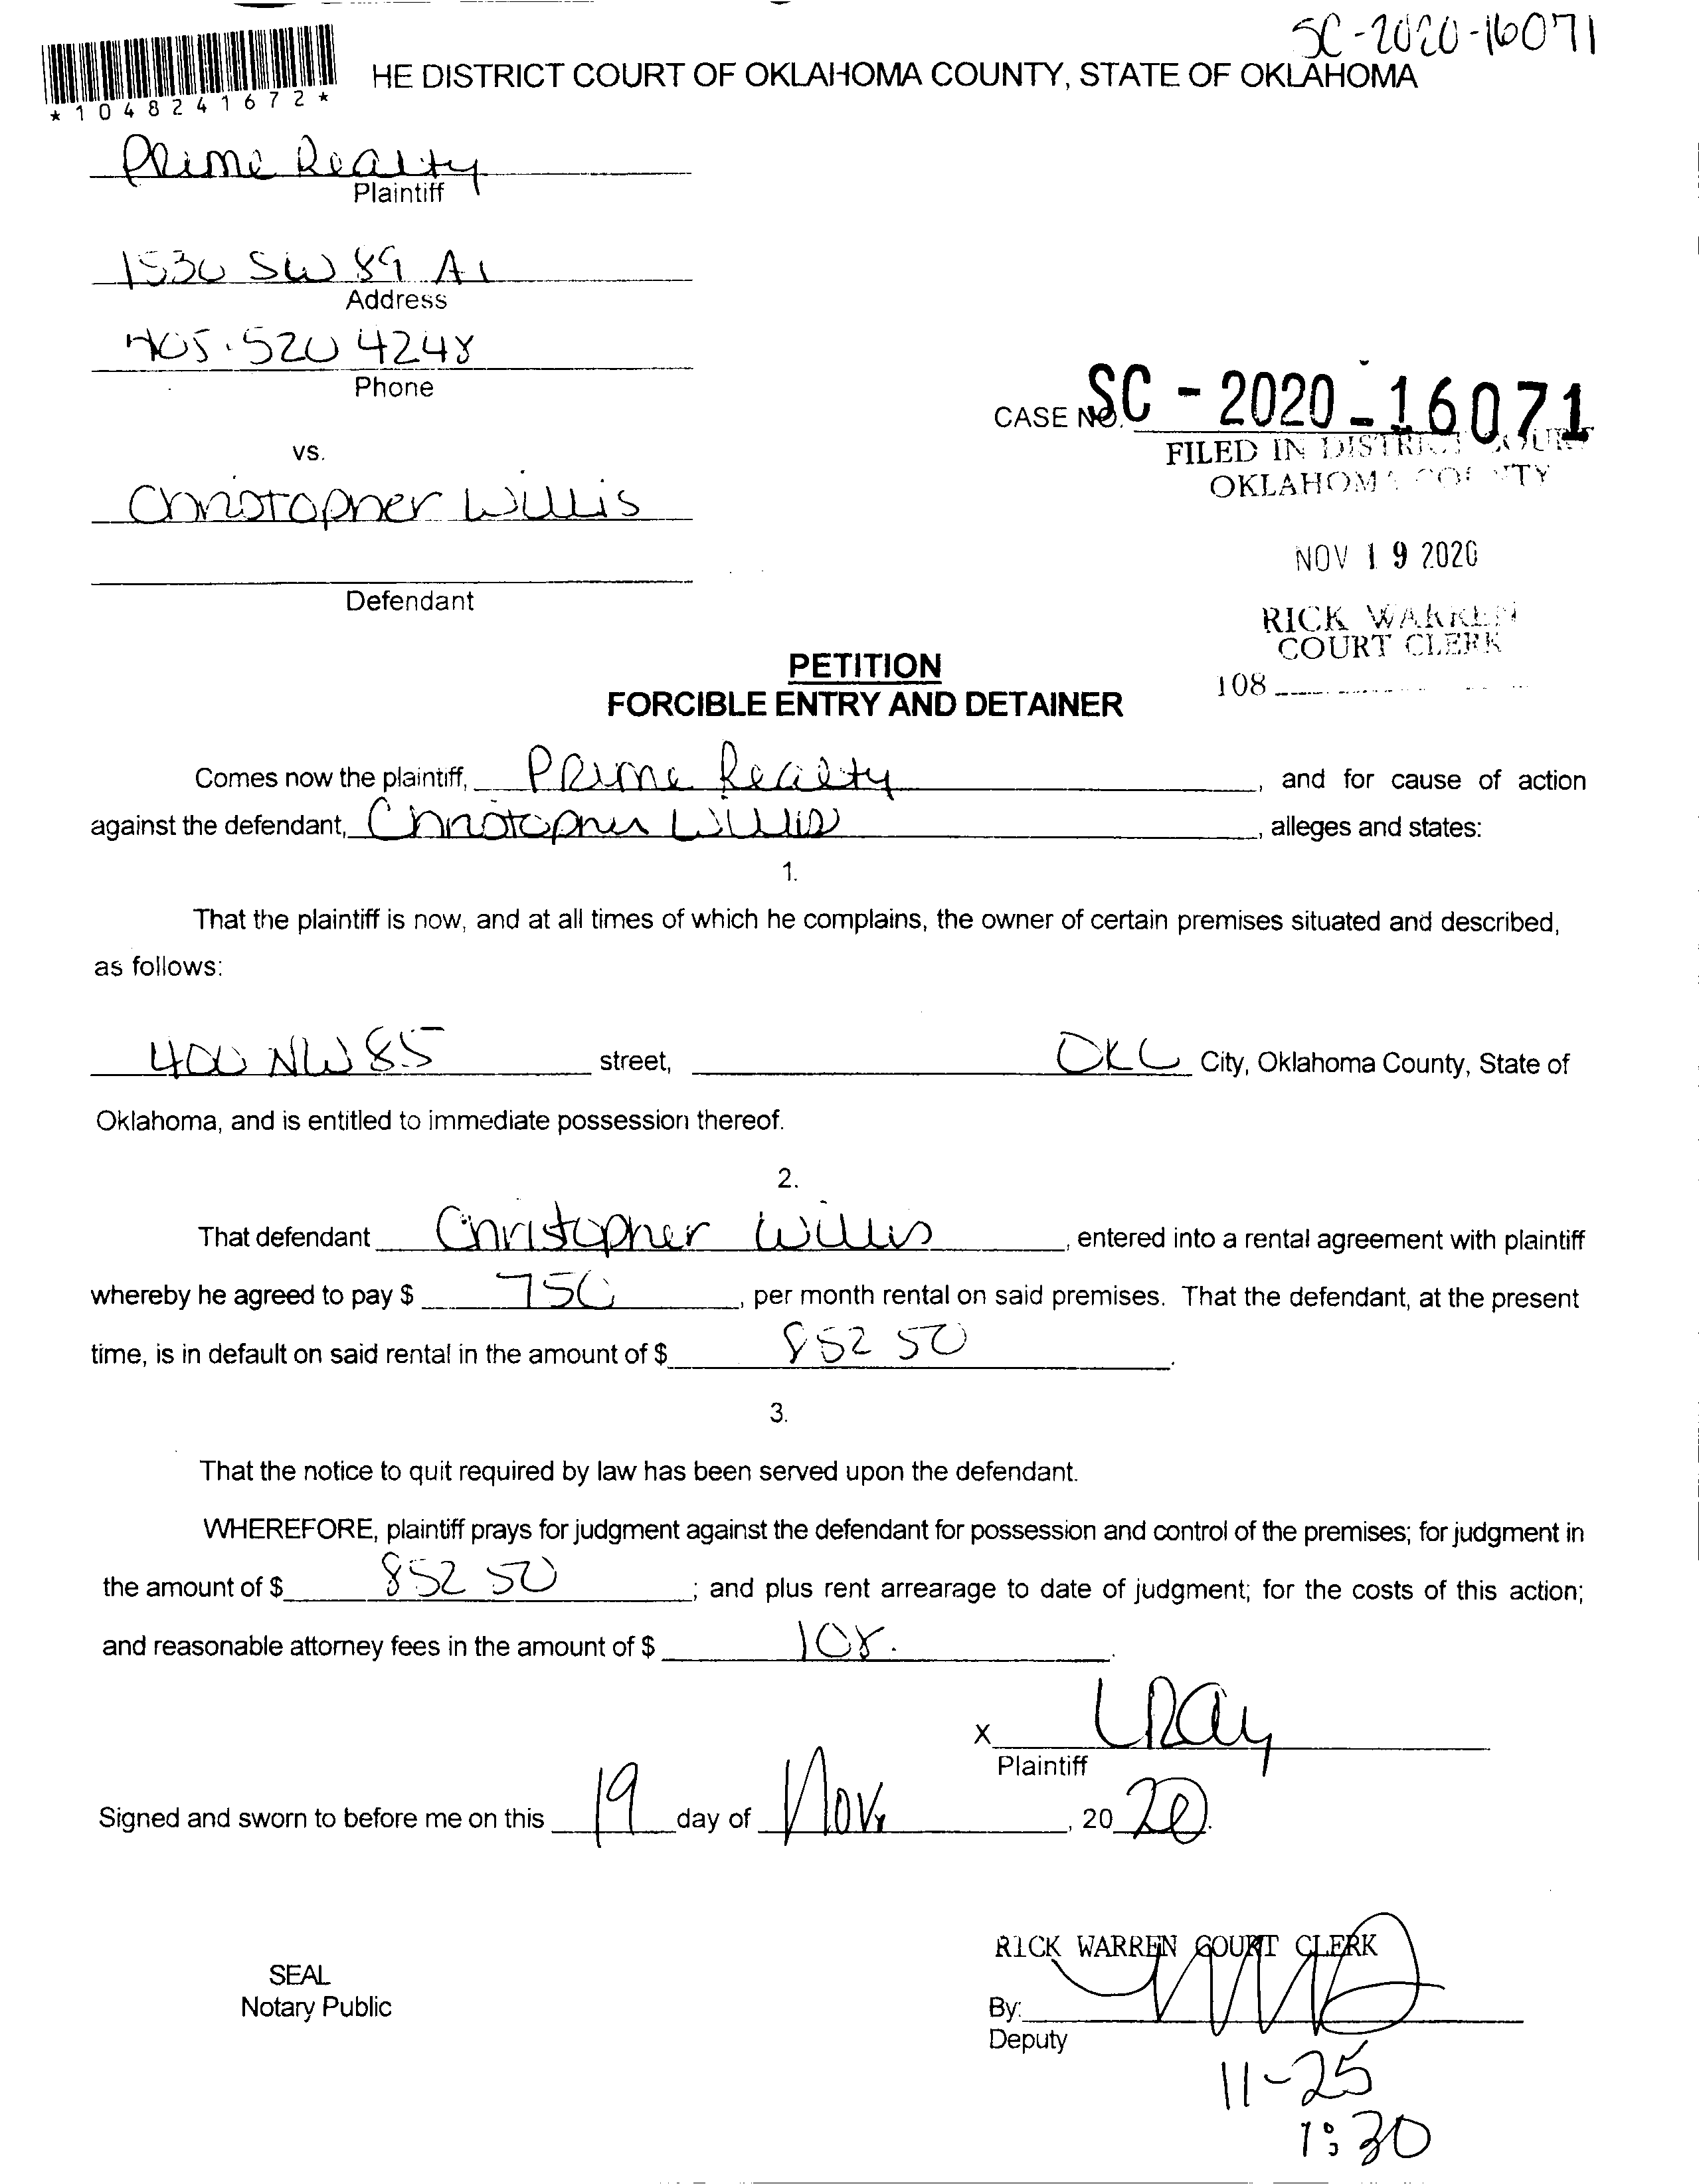 SC-2020-16071
*1048241672*
HE DISTRICT COURT OF OKLAHOMA COUNTY, STATE OF OKLAHOMA
Prime Realty
Plaintiff
1530 SW 89 A1
Address
405.520 4248
Phone
CASE NO. SC-2020-16071
FILED IN DISTRICT COURT
OKLAHOMA COUNTY
vs.
Christopher Willis
NOV 19 2020
Defendant
RICK WARREN
COURT CLERK
108
PETITION
FORCIBLE ENTRY AND DETAINER
Comes now the plaintiff, Prime Realty, and for cause of action
against the defendant, Christopher Willis, alleges and states:
1.
That the plaintiff is now, and at all times of which he complains, the owner of certain premises situated and described,
as follows:
400 NW 85 street, OKC City, Oklahoma County, State of
Oklahoma, and is entitled to immediate possession thereof.
2.
That defendant Christopher Willis, entered into a rental agreement with plaintiff
whereby he agreed to pay $ 750, per month rental on said premises. That the defendant, at the present
time, is in default on said rental in the amount of $ 852 50.
3.
That the notice to quit required by law has been served upon the defendant.
WHEREFORE, plaintiff prays for judgment against the defendant for possession and control of the premises; for judgment in
the amount of $ 852 50; and plus rent arrearage to date of judgment; for the costs of this action;
and reasonable attorney fees in the amount of $ 108.
X LRay
Plaintiff
Signed and sworn to before me on this 19 day of Nov, 2020.
RICK WARREN COURT CLERK
SEAL
Notary Public
By:
Deputy
11-25
1:30